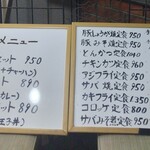 メニュー
セット 950
ナチャーハン)
ット 890
カレー)
ット 890
玉子丼)
豚しょうが焼定食 950
豚ニラ玉定食 950
とんかつ定食 1040
チキンカツ定食
アジフライ定食 950
サバ焼定食 950
カキフライ定食 1350
コロッケ定食 800
サバみそ煮定食 950